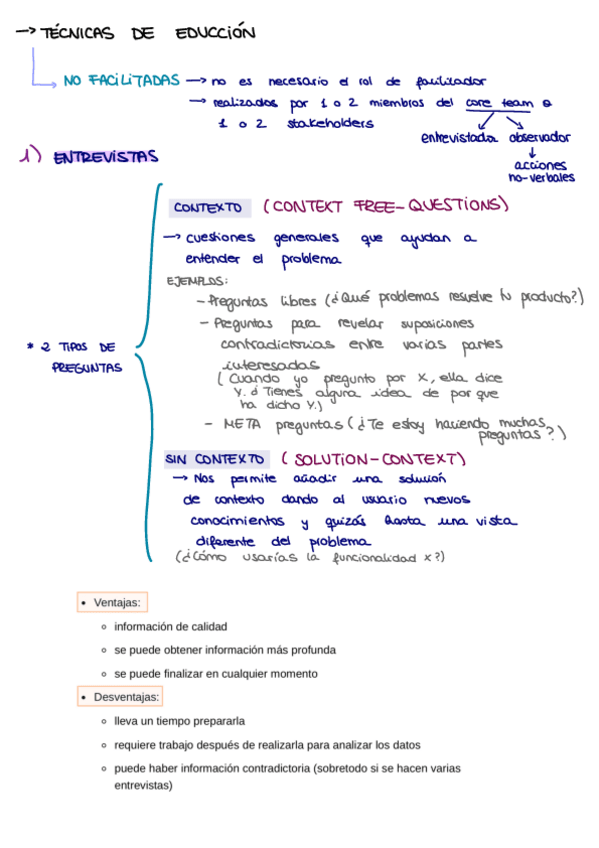 → TÉCNICAS DE EDUCCIÓN
NO FACILITADAS → no es necesario el rol de facilitador
→ realizados por 1 o 2 miembros del core team e
1 o 2 stakeholders
entrevistador observador
acciones
no-verbales
1) ENTREVISTAS
CONTEXTO (CONTEXT FREE-QUESTIONS)
→ cuestiones generales que ayudan a
entender el problema
EJEMPLOS:
- Preguntas libres (¿Qué problemas resuelve tu producto?)
- Preguntas para revelar suposiciones
contradictorias entre varias partes
interesadas
(Cuando yo pregunto por X, ella dice
Y. ¿Tienes alguna idea de por que
ha dicho Y.)
- META preguntas (¿Te estoy haciendo muchas
preguntas?)
* 2 TIPOS DE
PREGUNTAS
SIN CONTEXTO (SOLUTION-CONTEXT)
→ Nos permite añadir una solución
de contexto dando al usuario nuevos
conocimientos y quizás hasta una vista
diferente del problema
(¿Cómo usarías la funcionalidad x?)
• Ventajas:
○ información de calidad
○ se puede obtener información más profunda
○ se puede finalizar en cualquier momento
• Desventajas:
○ lleva un tiempo prepararla
○ requiere trabajo después de realizarla para analizar los datos
○ puede haber información contradictoria (sobretodo si se hacen varias
entrevistas)